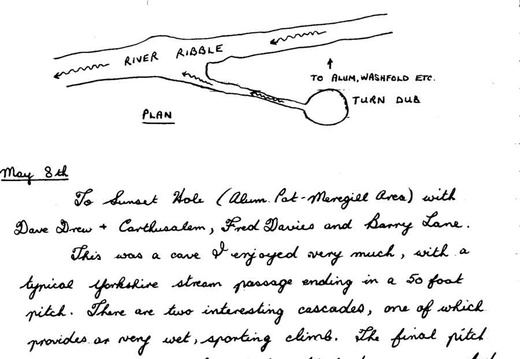 RIVER RIBBLE
TO ALUM, WASHFOLD ETC.
TURN DUB
PLAN
May 8th
To Sunset Hole (Alum Pot-Meregill Area) with
Dave Drew + Carthusalem, Fred Davies and Barry Lane.
This was a cave I enjoyed very much, with a
typical Yorkshire stream passage ending in a 50 foot
pitch. There are two interesting cascades, one of which
provides a very wet, sporting climb. The final pitch